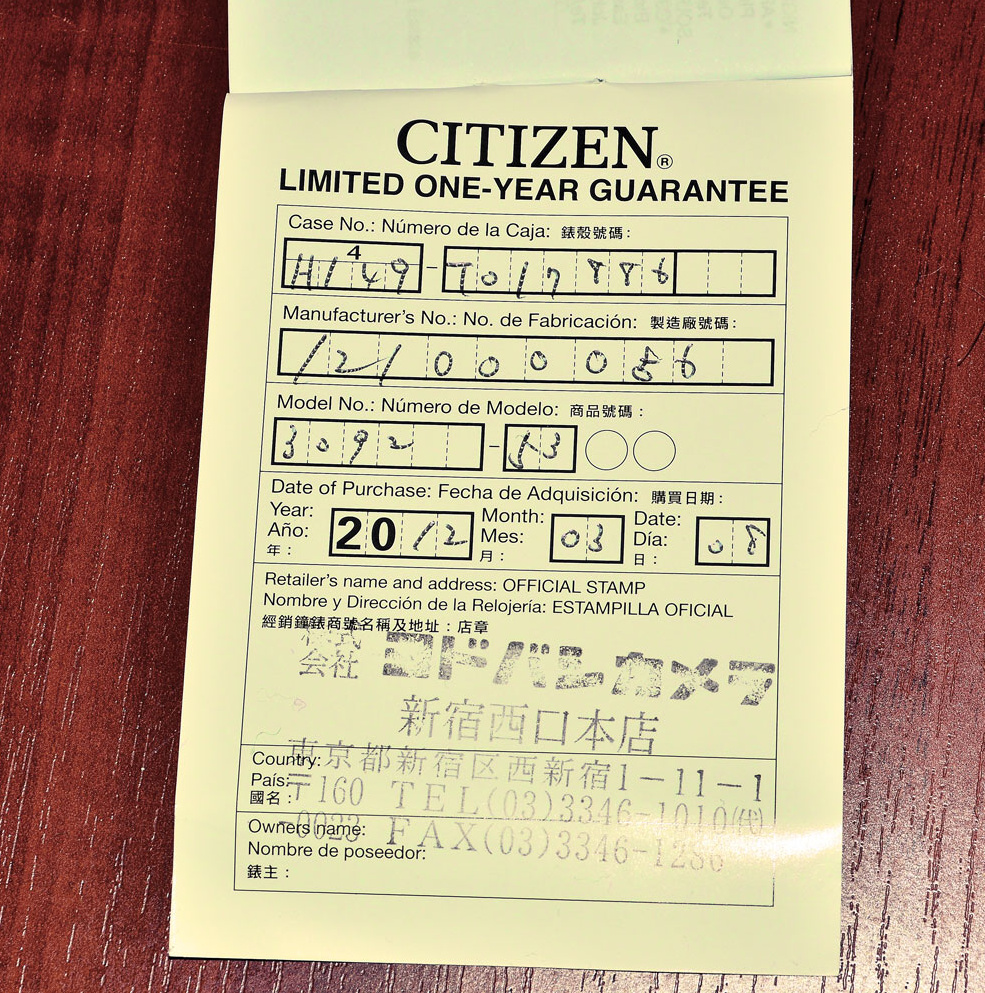 CITIZEN®
LIMITED ONE-YEAR GUARANTEE
Case No.: Número de la Caja: 錶殼號碼:
4
H149-T017886
Manufacturer's No.: No. de Fabricación: 製造廠號碼:
121000056
Model No.: Número de Modelo: 商品號碼:
3092-53
Date of Purchase: Fecha de Adquisición: 購買日期:
Year: 2012 Month: 03 Date: 08
Año: Mes: Día:
年: 月: 日:
Retailer's name and address: OFFICIAL STAMP
Nombre y Dirección de la Relojería: ESTAMPILLA OFICIAL
經銷鐘錶商號名稱及地址:店章
株式会社 ヨドバシカメラ
新宿西口本店
東京都新宿区西新宿1-11-1
Country:
País:
國名:
〒160-0023 TEL(03)3346-1010(代)
FAX(03)3346-1286
Owners name:
Nombre de poseedor:
錶主: